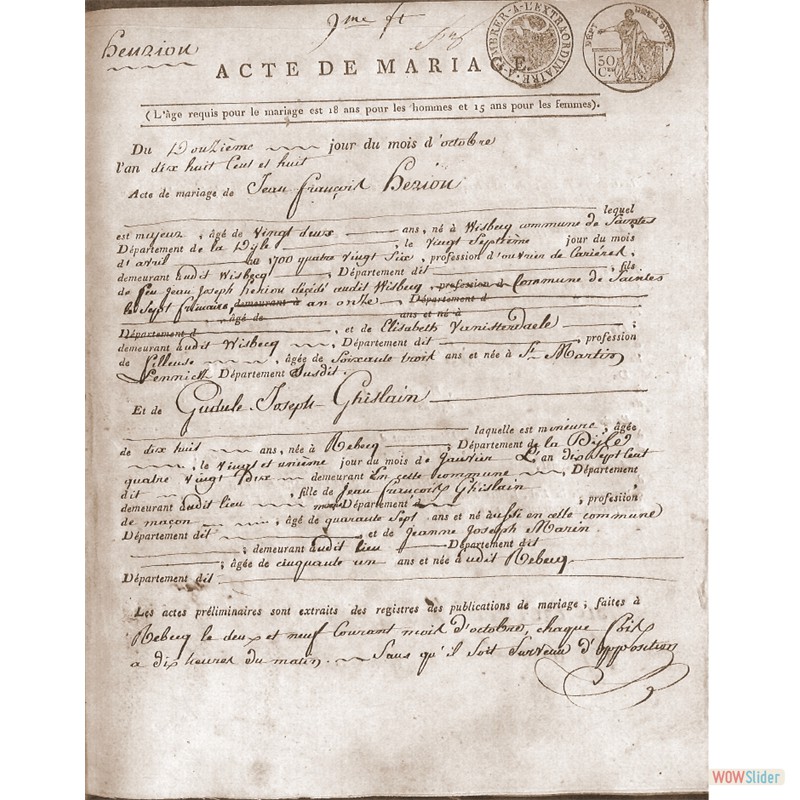 9me ft
heuzion
TIMBRER-A-L'EXTRAORDINAIRE
DEPT DE LA DYLE
50 Cmes
ACTE DE MARIAGE.
(L'âge requis pour le mariage est 18 ans pour les hommes et 15 ans pour les femmes).
Du Douzième jour du mois d'octobre
l'an dix huit Cent et huit
Acte de mariage de Jean françois heziou
lequel
est majeur, âgé de vingt deux ans, né à Wisbecq commune de Saintes
Département de la Dyle, le vingt septième jour du mois
d'avril 1700 quatre vingt Six, profession d'ouvrier de Carières
demeurant audit Wisbecq, Département dit, fils
de feu Jean Joseph heziou décédé audit Wisbecq, profession d Commune de Saintes
le Sept frimaire, demeurant à an onze Département d
âgé de ans et né à
Département d, et de Elisabeth Vanisterdaele
demeurant audit Wisbecq, Département dit, profession
de fileuse, âgée de Soixante trois ans et née à St Martin
Lennick Département Susdit.
Et de Gudule Joseph Ghislain
laquelle est mineure, âgée
de dix huit ans, née à Rebecq, Département de la Dyle
, le vingt et unième jour du mois de Janvier L'an dix Sept Cent
quatre vingt Dix demeurant En cette commune, Département
dit, fille de Jean françois Ghislain
demeurant audit lieu Département d, profession
de maçon, âgé de quarante Sept ans et né aussi en cette commune
Département dit et de Jeanne Joseph Marin
, demeurant audit lieu Département dit
, âgée de cinquante un ans et née audit Rebecq
Département dit
Les actes préliminaires sont extraits des registres des publications de mariage, faites à
Rebecq le deux et neuf Courant mois d'octobre, chaque fois
a dix heures du matin. Sans qu'il soit survenu d'opposition
WOWSlider